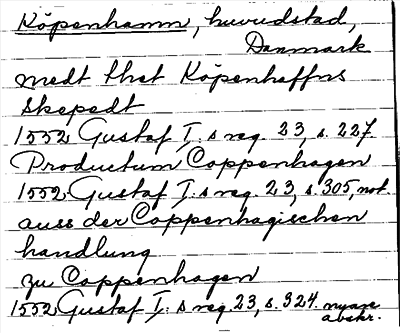 Köpenhamn, huvudstad,
Danmark
medt thet Köpenhaffns
skepedt
1552 Gustaf I:s reg. 23, s. 227.
Productum Coppenhagen
1552 Gustaf I:s reg. 23, s. 305, not.
auss der Coppenhagischen
handlung
zu Coppenhagen
1552 Gustaf I:s reg. 23, s. 324. nyare
avskr.